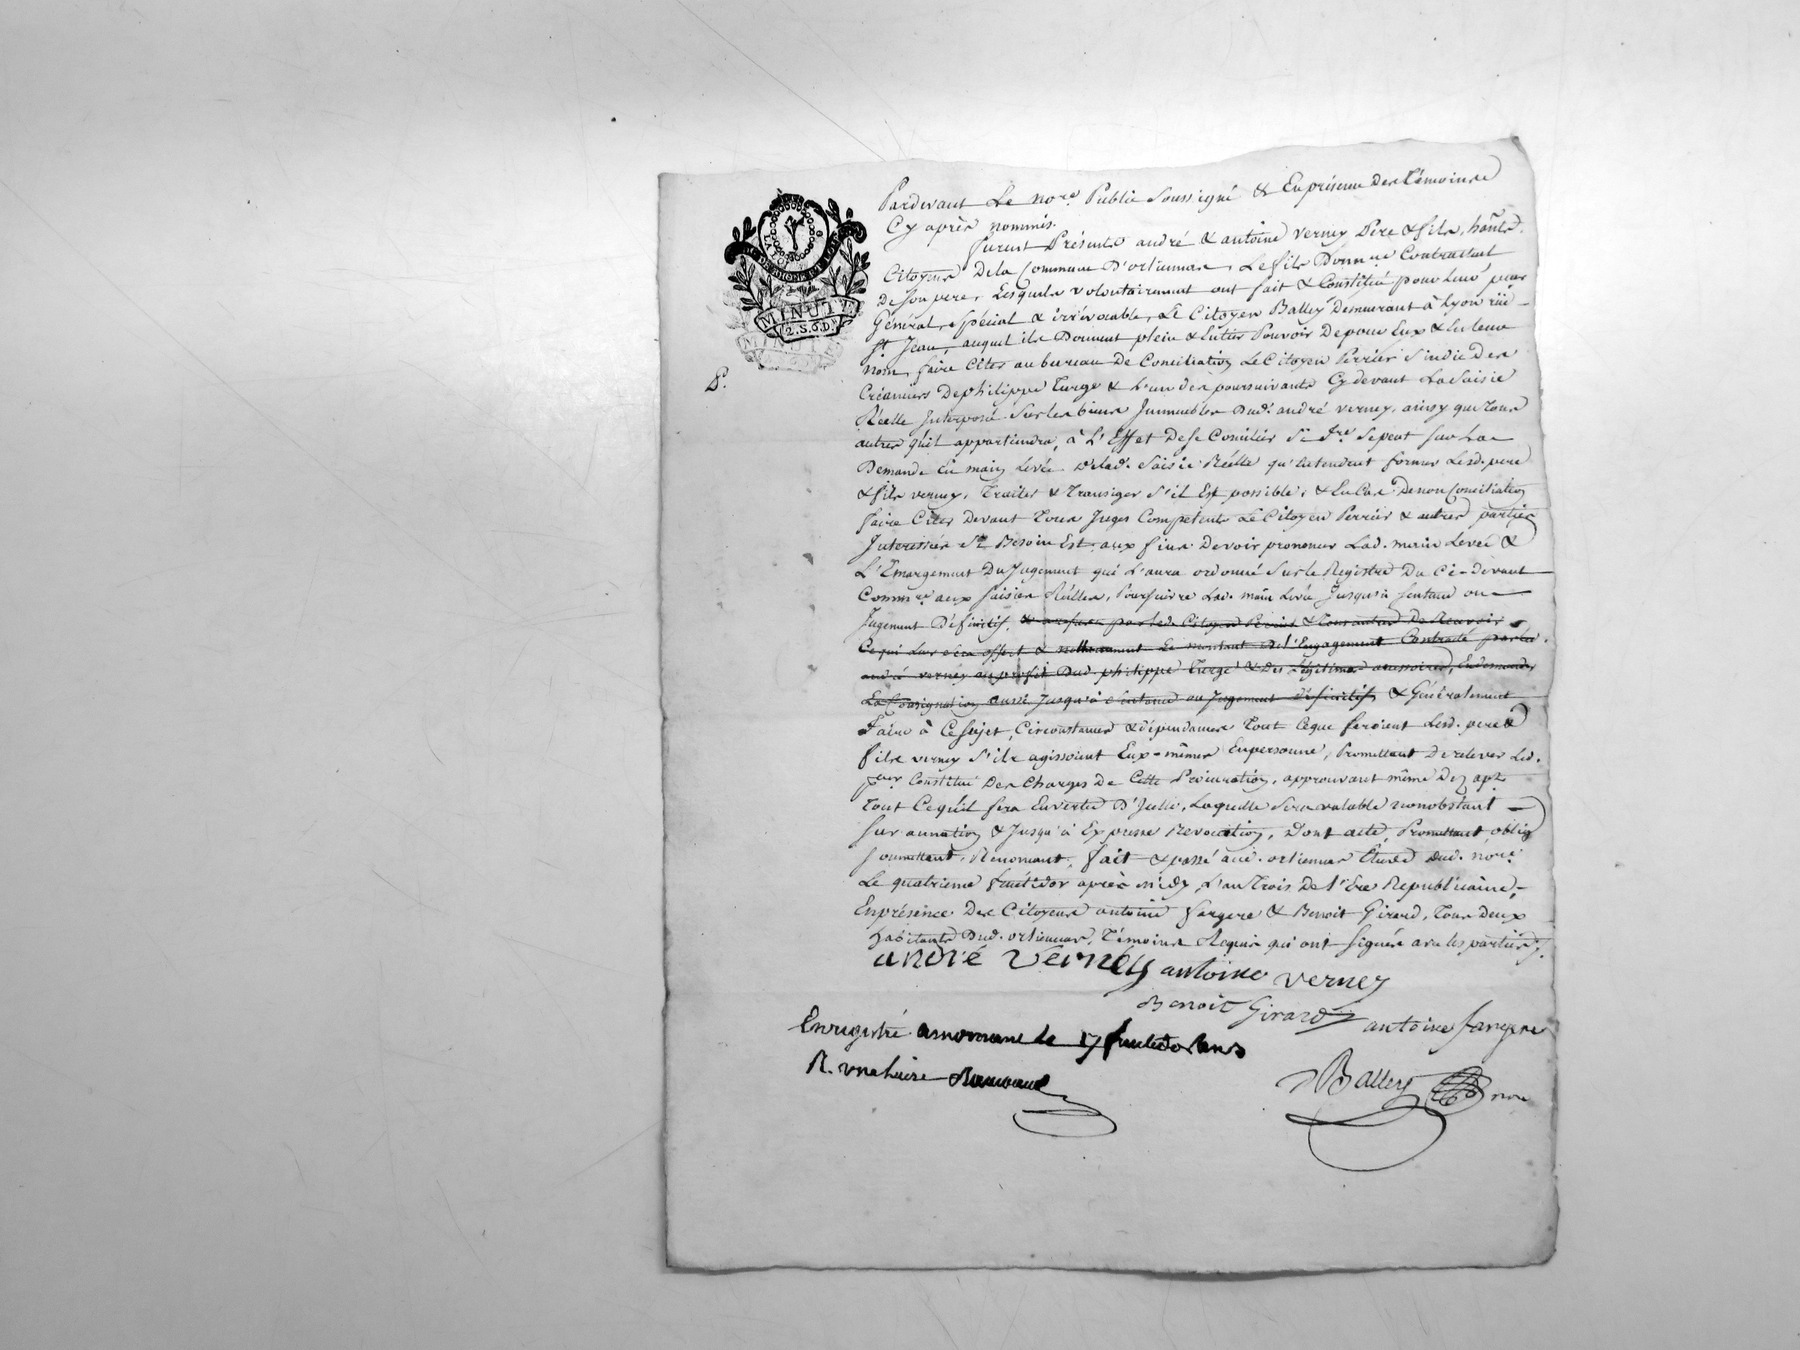 LA LOI
DE RHONE ET LOIRE
MINUTE
2.S.6.D
MINUTE
P.
Pardevant Le no.re Public Soussigné & En présence Des Témoins
Cy après nommés.
furent Présents andré & antoine verney Pere & fils, hânts
Citoyens De la Commune D'orliennas, Le fils Donn
De son pere, Lesquels volontairement ont fait & Constitué pour Leur
Général, spécial & irrévocable, Le Citoyen Balley Demeurant à Lyon rüe
St Jean, auquel ils Donnent plein & Entier Pouvoir De pour Eux & En leur
Nom, faire Citer au bureau De Conciliation Le Citoyen Perrier Sindic Des
Créanciers De philippe Turge & L'un des poursuivants Cy devant La Saisie
Réelle Interposée Sur les biens Immeubles Dud. andré verney, ainsy que tous
autres qu'il appartiendra, à L'Effet De Se Concilier Si faire Se peut Sur La
Demande En main Levée De lad. Saisie Réelle qu'Entendent former Lesd. pere
& fils verney, Traiter & Transiger S'il Est possible, & En Cas De non Conciliation
faire Citer Devant Tous Juges Compétents Le Citoyen Perrier & autres parties
Interessées Si Besoin Est, aux fins De voir prononcer Lad. main Levée &
L'Emargement Du Jugement qui L'aura ordonné Sur le Registre Du Ci-devant
Comm.re aux Saisies Réelles, Poursuivre Lad. main Levée Jusqu'à Sentence ou
Jugement Définitif, & a refus par led. Citoyen Perrier & Tous autres De Recevoir
Ce qui Leur Sera offert & nottamment Le montant De l'Engagement Contracté par led.
andré verney au profit Dud. philippe Turge & Des Légitimes accessoires, En demander
La Consignation aussi Jusqu'à Sentence ou Jugement Définitif & Généralement
Faire à Ce Sujet, Circonstances & dépendances Tout Ce que feroient Lesd. pere &
fils verney S'ils agissoient Eux-mêmes En personne, Promettant De relever Led.
Constitué Des Charges De Cette Procuration, approuvant même Dez apz
Tout Ce qu'il fera En vertu D'Icelle, Laquelle Sera valable nonobstant
Surannation & Jusqu'à Expresse Revocation, Dont acte, Promettant oblig
Soumettant, Renonçant, fait & passé aud. orliennas Étude dud. nore
Le quatrieme fructidor après midy, L'an Trois De l'Ere Republicaine,
En présence Des Citoyens antoine fargere & Benoit Girard, Tous Deux
habitants Dud. orliennas, Témoins Requis qui ont Signés avec les parties.
andré Verney antoine verney
Benoit Girard antoine fargere
Enregistré a mornant le 17 fructidor an 3
R.
Balley nore